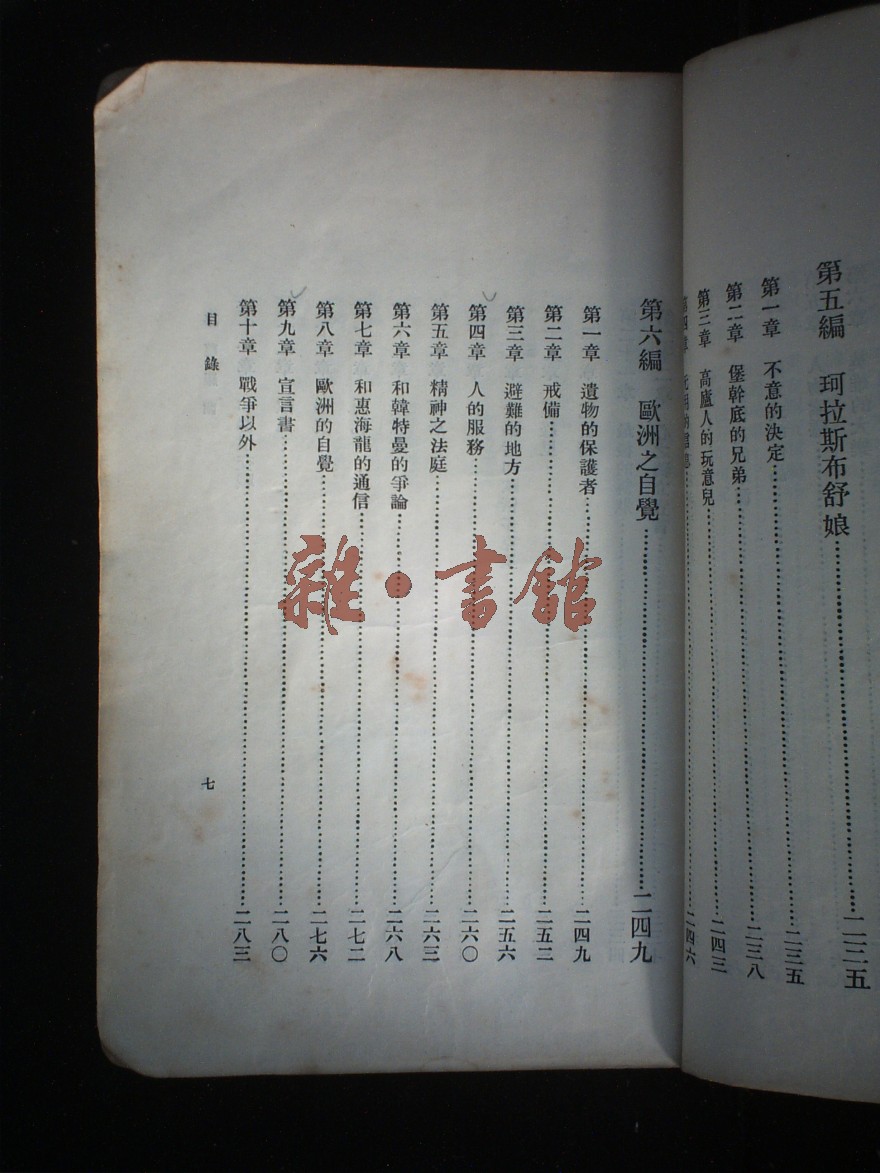 第五編　珂拉斯布舒娘……二三五
第一章　不意的決定……二三五
第二章　堡幹底的兄弟……二三八
第三章　高廬人的玩意兒……二四三
第四章……二四六
第六編　歐洲之自覺……二四九
第一章　遺物的保護者……二四九
第二章　戒備……二五二
第三章　避難的地方……二五六
第四章　人的服務……二六〇
第五章　精神之法庭……二六三
第六章　和韓特曼的爭論……二六八
第七章　和惠海龍的通信……二七二
第八章　歐洲的自覺……二七六
第九章　宣言書……二八〇
第十章　戰爭以外……二八三
目錄
七
雜・書館